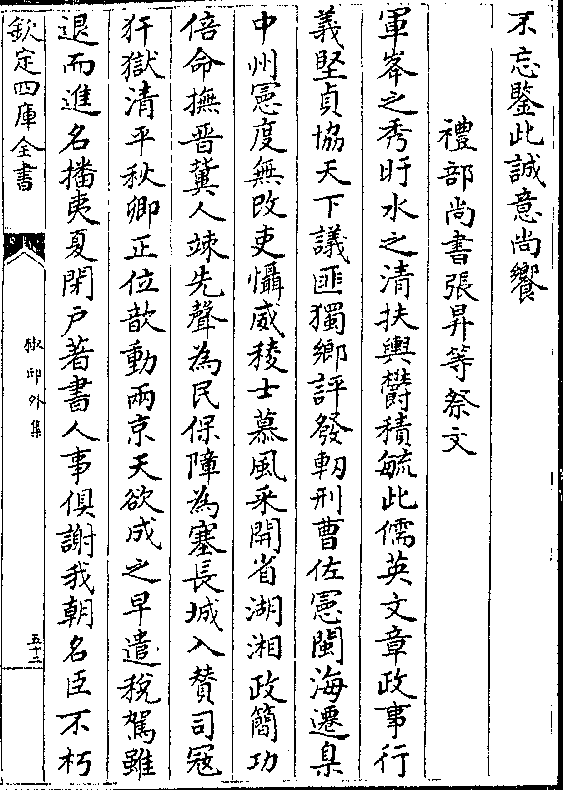 不忘鑒此誠意尚饗
禮部尚書張昇等祭文
軍峯之秀盱水之清扶輿欝積毓此儒英文章政事行
義堅貞協天下議匪獨鄉評發軔刑曹佐憲閩海遷臬
中州憲度無改吏懾威稜士慕風采開省湖湘政簡功
倍命撫晋冀人竦先聲為民保障為塞長城入贊司寇
犴獄清平秋卿正位歆動兩京天欲成之早遣稅駕雖
退而進名播夷夏閉戸著書人事俱謝我朝名臣不朽
欽定四庫全書
椒邱外集
五十三